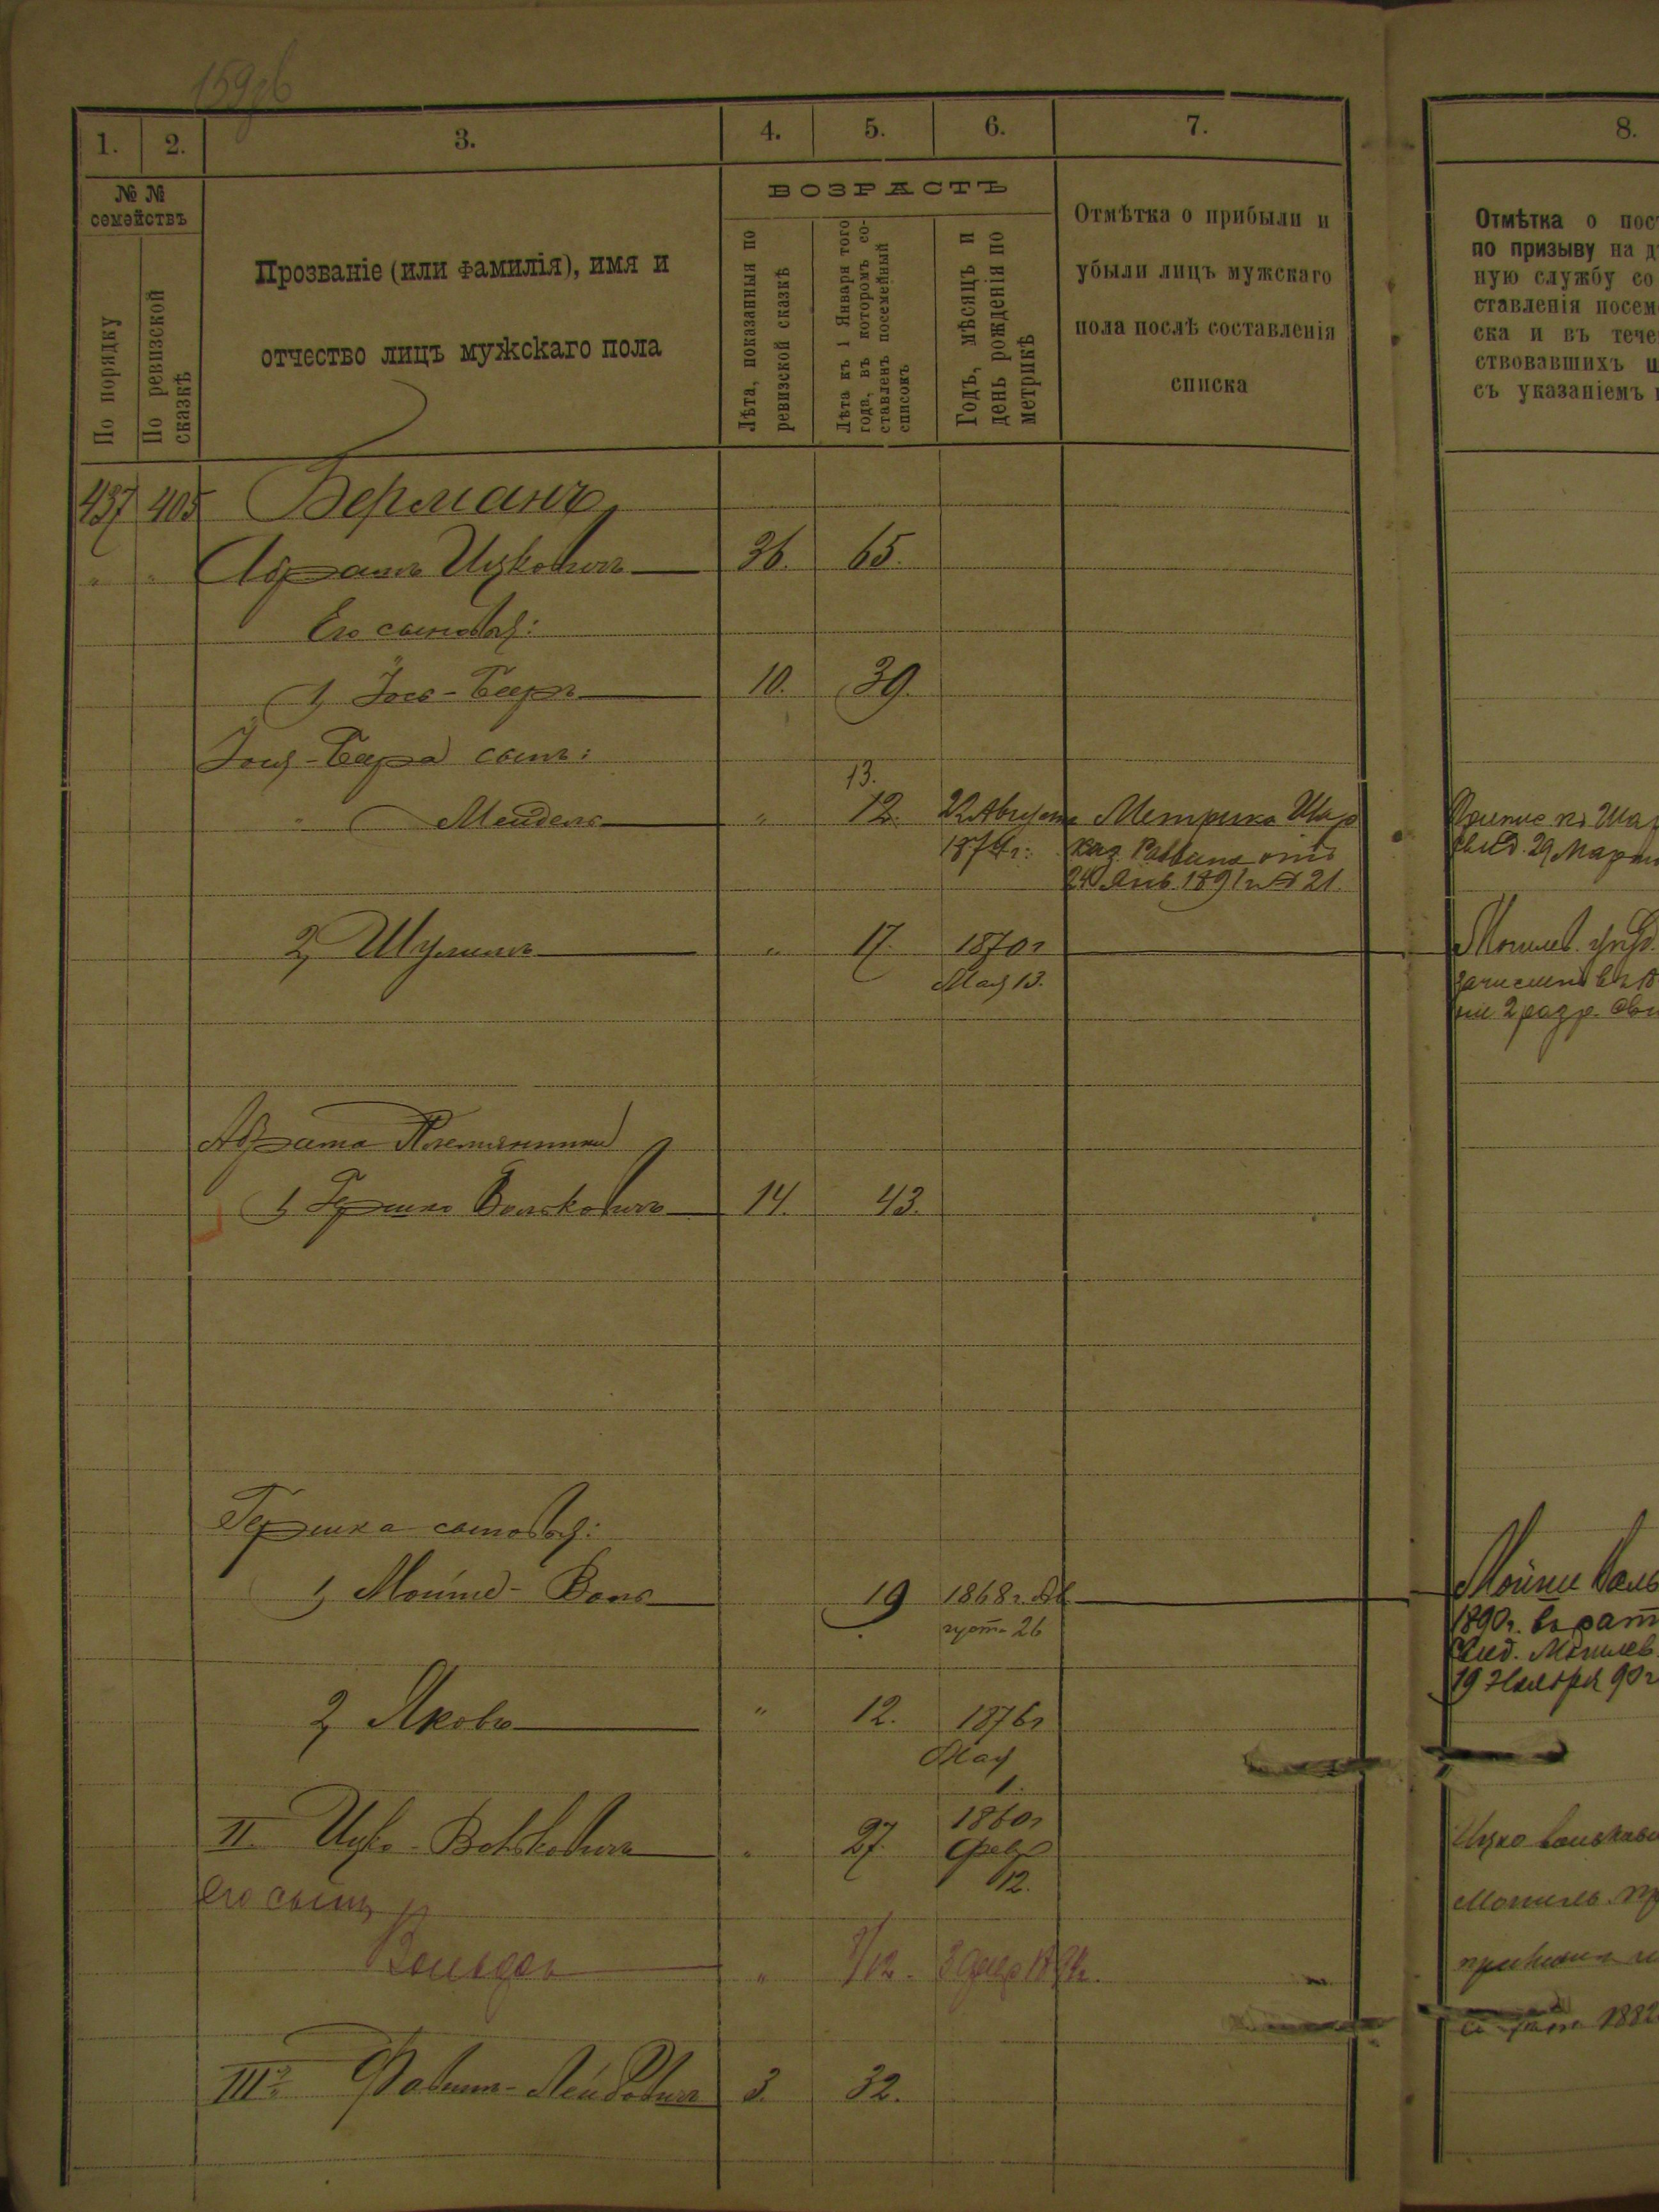 159об
1. 2. 3. 4. 5. 6. 7. 8.
№ № семействъ
По порядку
По ревизской сказкѣ
Прозваніе (или фамилія), имя и
отчество лицъ мужскаго пола
ВОЗРАСТЪ
Лѣта, показанныя по ревизской сказкѣ
Лѣта къ 1 Января того года, въ которомъ составленъ посемейный списокъ
Годъ, мѣсяцъ и день рожденія по метрикѣ
Отмѣтка о прибыли и
убыли лицъ мужскаго
пола послѣ составленія
списка
Отмѣтка о пос
по призыву на д
ную службу со
ставленія посем
ска и въ тече
ствовавшихъ
съ указаніемъ
437 405 Берманъ
" " Абрамъ Ицковичъ 36. 65.
Его сыновья:
1, Іось-Беръ 10. 39.
Іося-Бера сынъ:
13.
" Мендель " 12. 22 Августа Метрика Шар
1874 г: каз. Раввина отъ
24 Янв. 1891 г № 21.
29 Мар
2, Шулимъ " 17. 1870 г
Мая 13.
Могилев.
2 разр.
Абрама Племянники
1, Гершко Вольковичъ 14. 43.
Гершка сыновья:
1, Мойше-Воль 19 1868 г. Ав
густа 26
Мойше Воль
1890 г. въ рат
Свид. Могилев.
19 Ноября 90 г
2, Яковъ " 12. 1876 г
Мая
1.
II. Ицко-Вольковичъ " 27. 1860 г
Февр
12.
Ицко Вольков
Его сынъ
Вольфъ " /12. 3
Могилев.
1882
III. Лейбовичъ 3. 32.